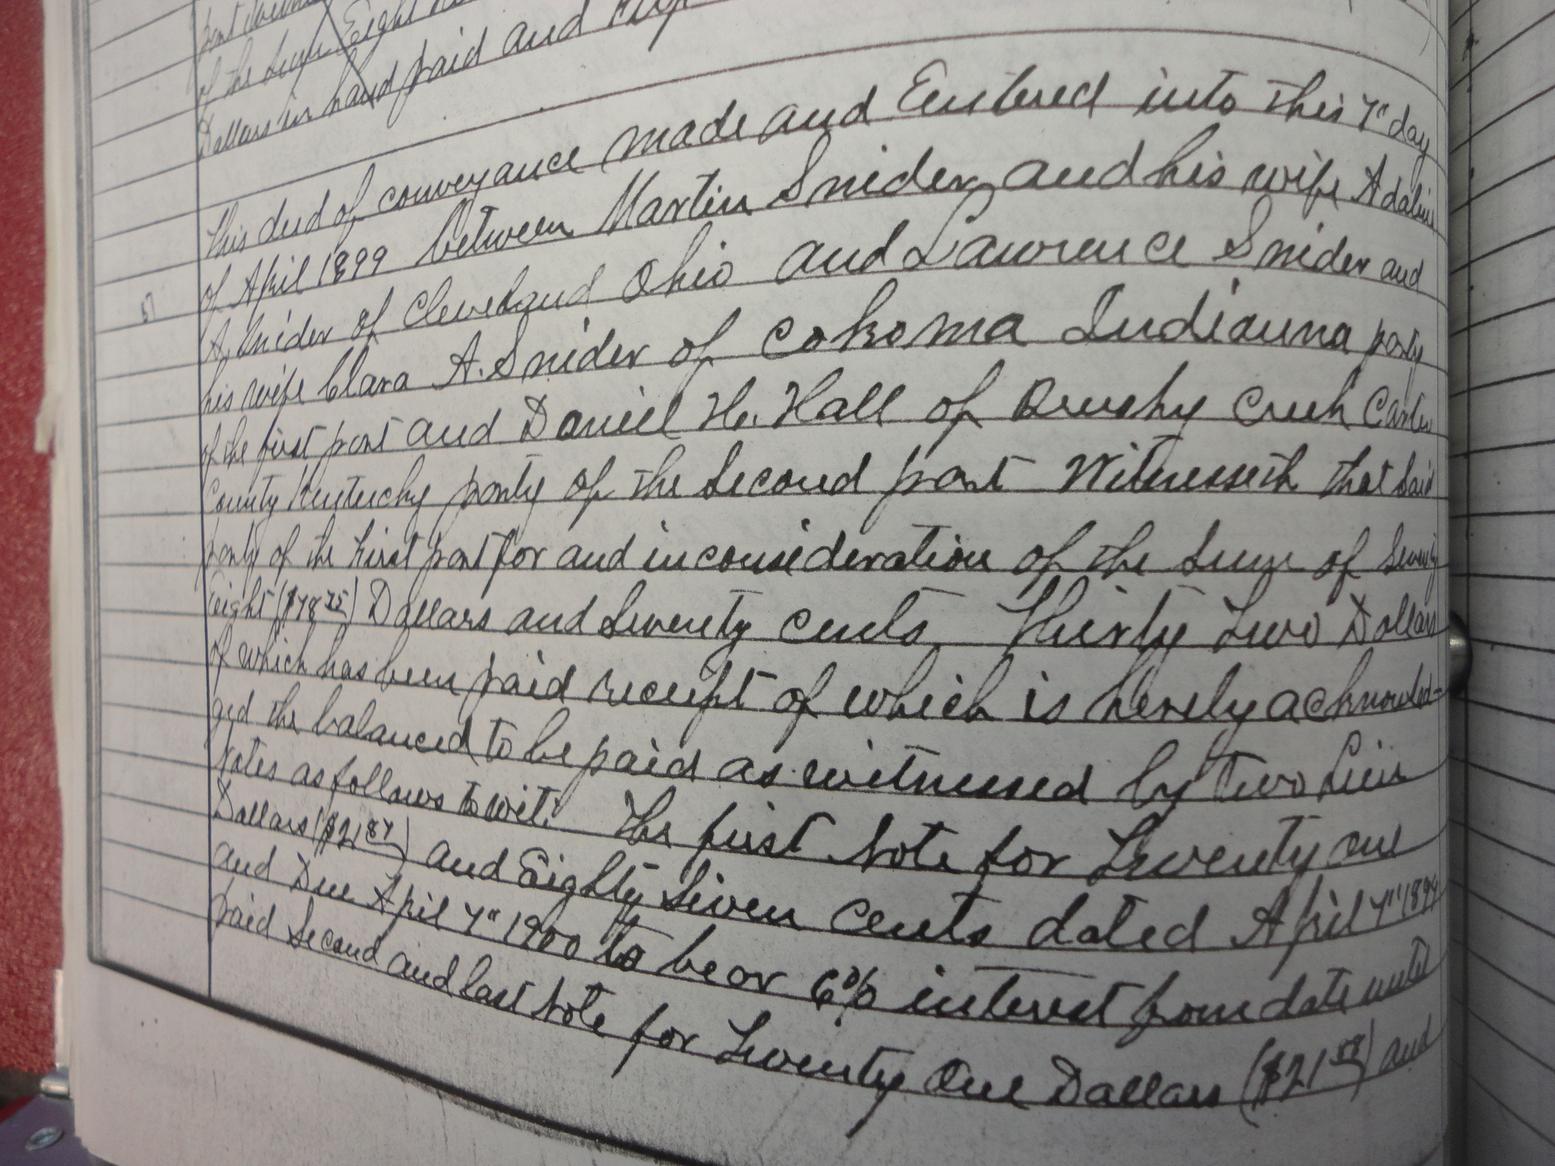 of the sum Eight
Dollars in hand paid and
This deed of conveyance made and Entered into this 7" day
of April 1899 between Martin Snider and his wife Adaline
A. Snider of Cleveland Ohio and Lawrence Snider and
his wife Clara A. Snider of Cokoma Indianna party
of the first part and Daniel H. Hall of Brushy Creek Carter
County Kentucky party of the Second part Witnesseth that Said
party of the first part for and in consideration of the Sum of Seventy
Eight Dollars and Seventy cents Thirty Two Dollars
of which has been paid receipt of which is hereby acknowled-
ged the balanced to be paid as witnessed by two Lien
Notes as follows to wit: The first Note for Twenty one
Dollars ($21 87) and Eighty Seven cents dated April 7" 1899
and Due April 7" 1900 to bear 6% interest from date until
paid Second and last Note for Twenty One Dollars ($21 88) and